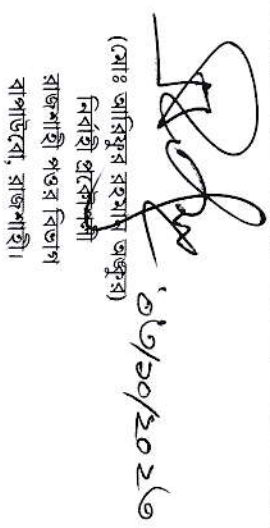 (মোঃ আরিফুর রহমান অঙ্কুর)
নির্বাহী প্রকৌশলী
রাজশাহী পওর বিভাগ
বাপাউবো, রাজশাহী।